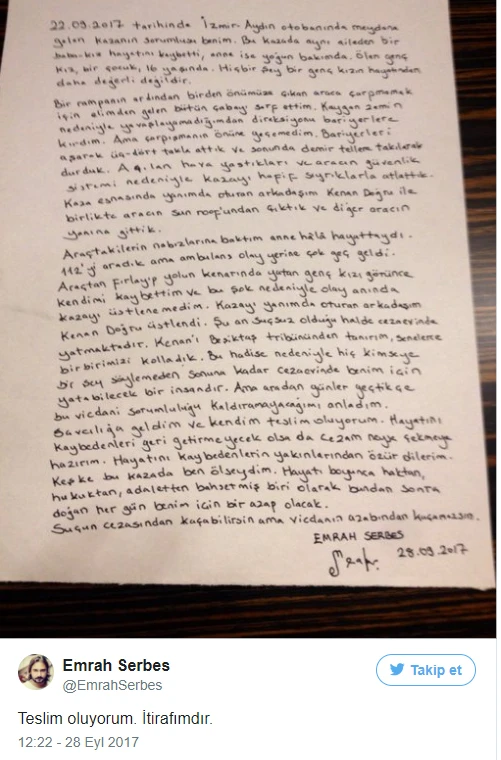 22.09.2017 tarihinde İzmir Aydın otobanında meydana
gelen kazanın sorumlusu benim. Bu kazada aynı aileden bir
baba-kız hayatını kaybetti, anne ise yoğun bakımda. Ölen genç
kız, bir çocuk, 16 yaşında. Hiçbir şey bir genç kızın hayatından
daha değerli değildir.
Bir rampanın ardından birden önümüze çıkan araca çarpmamak
için elimden gelen bütün çabayı sarf ettim. Kaygan zemin
nedeniyle yavaşlayamadığımdan direksiyonu bariyerlere
kırdım. Ama çarpışmanın önüne geçemedim. Bariyerleri
aşarak üç-dört takla attık ve sonunda demir tellere takılarak
durduk. Açılan hava yastıkları ve aracın güvenlik
sistemi nedeniyle kazayı hafif sıyrıklarla atlattık.
Kaza esnasında yanımda oturan arkadaşım Kenan Doğru ile
birlikte aracın sun roof'undan çıktık ve diğer aracın
yanına gittik.
Araçtakilerin nabızlarına baktım anne hâlâ hayattaydı.
112'yi aradık ama ambulans olay yerine çok geç geldi.
Araçtan fırlayıp yolun kenarında yatan genç kızı görünce
kendimi kaybettim ve bu şok nedeniyle olay anında
kazayı üstlenemedim. Kazayı yanımda oturan arkadaşım
Kenan Doğru üstlendi. Şu an suçsuz olduğu halde cezaevinde
yatmaktadır. Kenan'ı Beşiktaş tribününden tanırım, senelerce
birbirimizi kolladık. Bu hadise nedeniyle hiç kimseye
bir şey söylemeden sonuna kadar cezaevinde benim için
yatabilecek bir insandır. Ama aradan günler geçtikçe
bu vicdani sorumluluğu kaldıramayacağımı anladım.
Savcılığa geldim ve kendim teslim oluyorum. Hayatını
kaybedenleri geri getirmeyecek olsa da cezam neyse çekmeye
hazırım. Hayatını kaybedenlerin yakınlarından özür dilerim.
Keşke bu kazada ben ölseydim. Hayatı boyunca haktan,
hukuktan, adaletten bahsetmiş biri olarak bundan sonra
doğan her gün benim için bir azap olacak.
Suçun cezasından kaçabilirsin ama vicdanın azabından kaçamazsın.
EMRAH SERBES
28.09.2017
Emrah Serbes
@EmrahSerbes
Takip et
Teslim oluyorum. İtirafımdır.
12:22 - 28 Eyl 2017